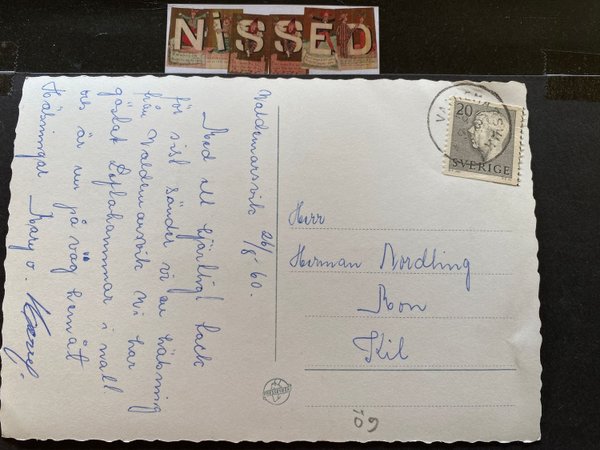 NiSSED
Valdemarsvik 26/8-60.
Med ett hjärtligt tack
för sist sänder vi en hälsning
från Valdemarsvik. Vi har
gästat hammar i natt
är nu på väg hemåt
Hälsningar Mary o.
20
SVERIGE
Herr
Herman Nordling
Bon
Kil
ÖG